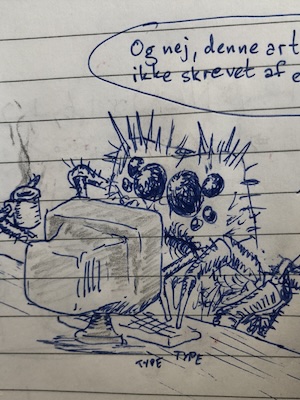 Og nej, denne art
ikke skrevet af e
TYPE TYPE